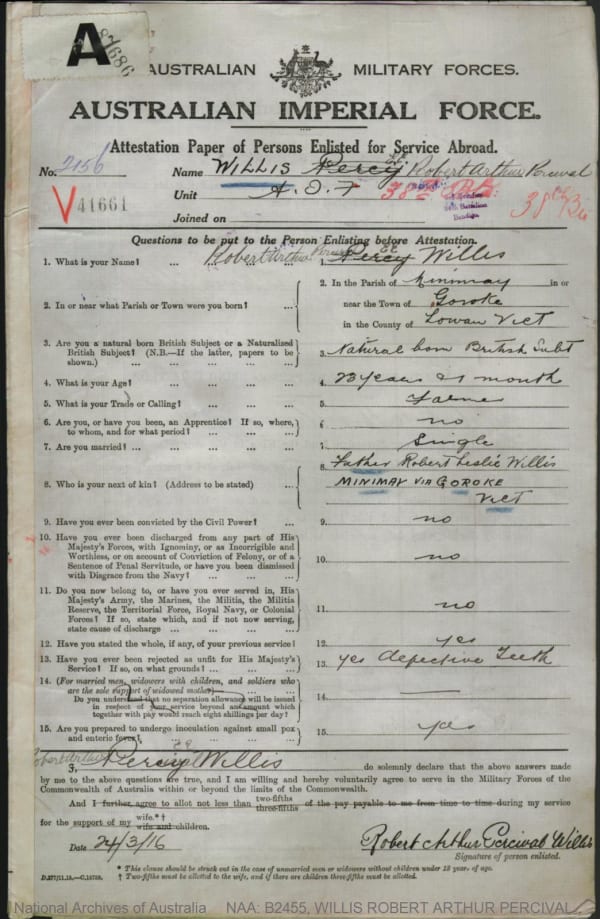 A
81686
AUSTRALIAN MILITARY FORCES.
AUSTRALIAN IMPERIAL FORCE.
Attestation Paper of Persons Enlisted for Service Abroad.
No. 2156 Name WILLIS Percy Robert Arthur Percival
V 41661 Unit A.I.F 38th
Bendigo
Joined on
Questions to be put to the Person Enlisting before Attestation.
1. What is your Name? ... 1. Robert Arthur Percy Willis
2. In or near what Parish or Town were you born? ... 2. In the Parish of Minimay in or
near the Town of Goroke
in the County of Lowan Vict
3. Are you a natural born British Subject or a Naturalized
British Subject? (N.B.—If the latter, papers to be
shown.) ... 3. Natural born British Subt
4. What is your Age? ... 4. 23 years 1 month
5. What is your Trade or Calling? ... 5. Farmer
6. Are you, or have you been, an Apprentice? If so, where,
to whom, and for what period? ... 6. no
7. Are you married? ... 7. Single
8. Who is your next of kin? (Address to be stated) ... 8. Father Robert Leslie Willis
MINIMAY VIA GOROKE
Vict
9. Have you ever been convicted by the Civil Power? ... 9. no
10. Have you ever been discharged from any part of His
Majesty's Forces, with Ignominy, or as Incorrigible and
Worthless, or on account of Conviction of Felony, or of a
Sentence of Penal Servitude, or have you been dismissed
with Disgrace from the Navy? ... 10. no
11. Do you now belong to, or have you ever served in, His
Majesty's Army, the Marines, the Militia, the Militia
Reserve, the Territorial Force, Royal Navy, or Colonial
Forces? If so, state which, and if not now serving,
state cause of discharge ... 11. no
12. Have you stated the whole, if any, of your previous service? 12. yes
13. Have you ever been rejected as unfit for His Majesty's
Service? If so, on what grounds? ... 13. yes defective Teeth
14. (For married men, widowers with children, and soldiers who
are the sole support of widowed mother)—
Do you understand that no separation allowance will be issued
in respect of your service beyond an amount which
together with pay would reach eight shillings per day? 14. —
15. Are you prepared to undergo inoculation against small pox
and enteric fever? 15. yes
I, Robert Arthur Percy Willis do solemnly declare that the above answers made
by me to the above questions are true, and I am willing and hereby voluntarily agree to serve in the Military Forces of the
Commonwealth of Australia within or beyond the limits of the Commonwealth.
And I further agree to allot not less than two-fifths three-fifths of the pay payable to me from time to time during my service
for the support of my wife.*† wife and children.
Date 24/3/16 Robert Arthur Percival Willis
Signature of person enlisted.
* This clause should be struck out in the case of unmarried men or widowers without children under 18 years of age.
† Two-fifths must be allotted to the wife, and if there are children three-fifths must be allotted.
National Archives of Australia NAA: B2455, WILLIS ROBERT ARTHUR PERCIVAL